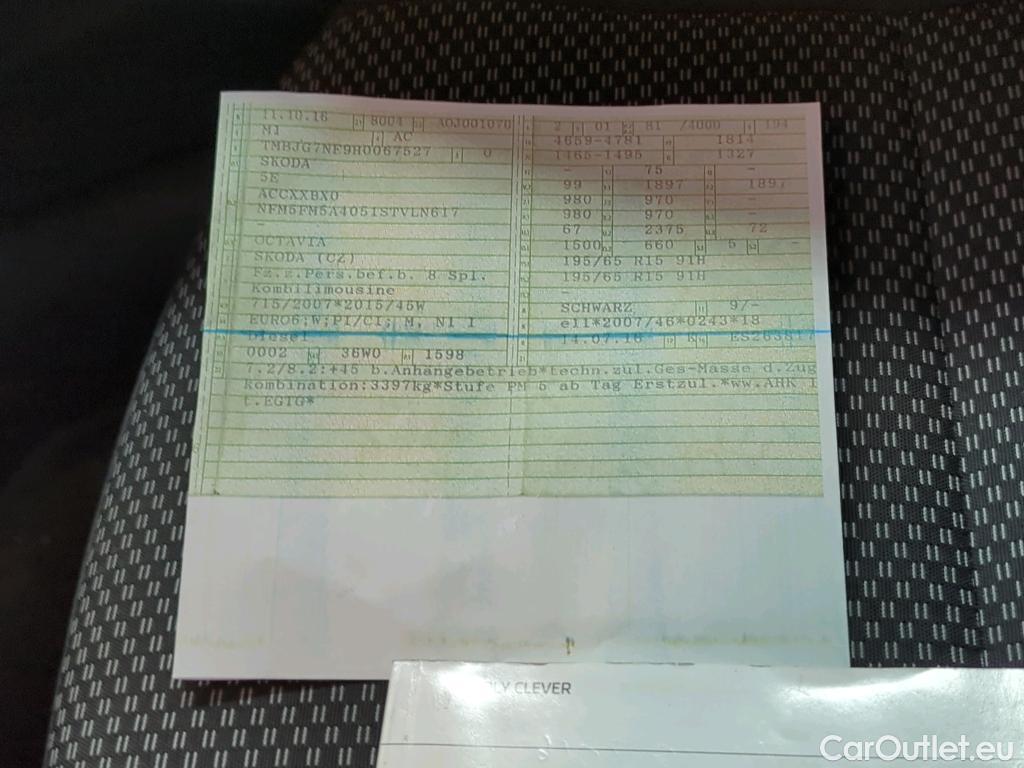 11.10.16 8004 AOJ001070
M1 AC
TMBJG7NE9H0067527 0
SKODA
5E
ACCXXBX0
NFM5FM5A4051STVLN617
-
OCTAVIA
SKODA (CZ)
Fz.z.Pers.bef.b. 8 Spl.
Kombilimousine
715/2007*2015/45W
EURO6;W;PI/CI; M, N1 I
Diesel
0002 36W0 1598
2 01 81 /4000 194
4659-4781 1814
1465-1495 1327
- 75 -
99 1897 1897
980 970 -
980 970 -
67 2375 72
1500 660 5 -
195/65 R15 91H
195/65 R15 91H
-
SCHWARZ 9/-
e11*2007/46*0243*18
14.07.16 K ES263817
7.2/8.2:+45 b.Anhängebetrieb*techn.zul.Ges-Masse d.Zug
Kombination:3397kg*Stufe PM 5 ab Tag Erstzul.*ww.AHK l
t.EGTG*
LY CLEVER
CarOutlet.eu